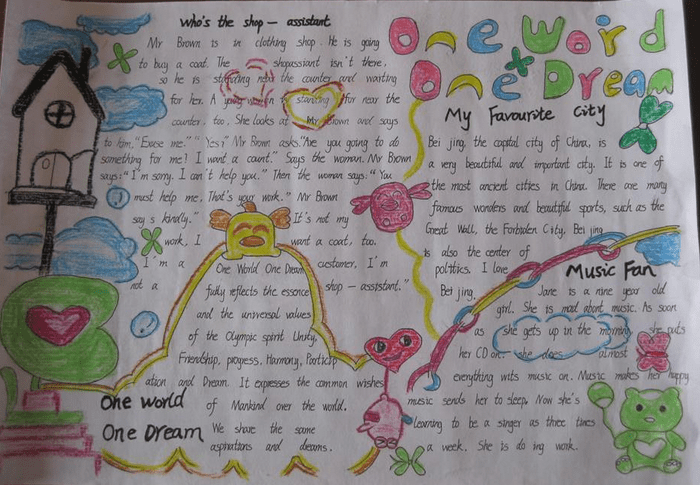 Who's the shop – assistant
Mr Brown is in clothing shop. He is going
to buy a coat. The shopassiant isn't there,
so he is standing near the counter and waiting
for her. A young woman is standing far near the
counter, too. She looks at Mr Brown and says
to him, "Excuse me." "Yes?" Mr Brown asks. "Are you going to do
something for me? I want a count." Says the woman. Mr Brown
says: "I'm sorry. I can't help you." Then the woman says: "You
must help me. That's your work." Mr Brown
say s kindly." It's not my
work, I want a coat, too.
I'm a customer, I'm
not a shop – assistant."
One World One Dream
fully reflects the essence
and the universal values
of the Olympic spirit Unity,
Friendship, progress, Harmony, Particip
ation and Dream. It expresses the common wishes
of Mankind over the world.
We share the same
aspirations and dreams.
One World
One Dream
One Word
One Dream
My Favourite City
Bei jing, the capital city of China, is
a very beautiful and important city. It is one of
the most ancient cities in China. There are many
famous wonders and beautiful sports, such as the
Great Wall, the Forbiden City. Bei jing
is also the center of
politics. I love
Bei jing.
Music Fan
Jane is a nine year old
girl. She is mad about music. As soon
as she gets up in the morning, she puts
her CD on. she does almost
everything wits music on. Music makes her happy
music sends her to sleep. Now she's
learning to be a singer as three times
a week. She is do ing work.